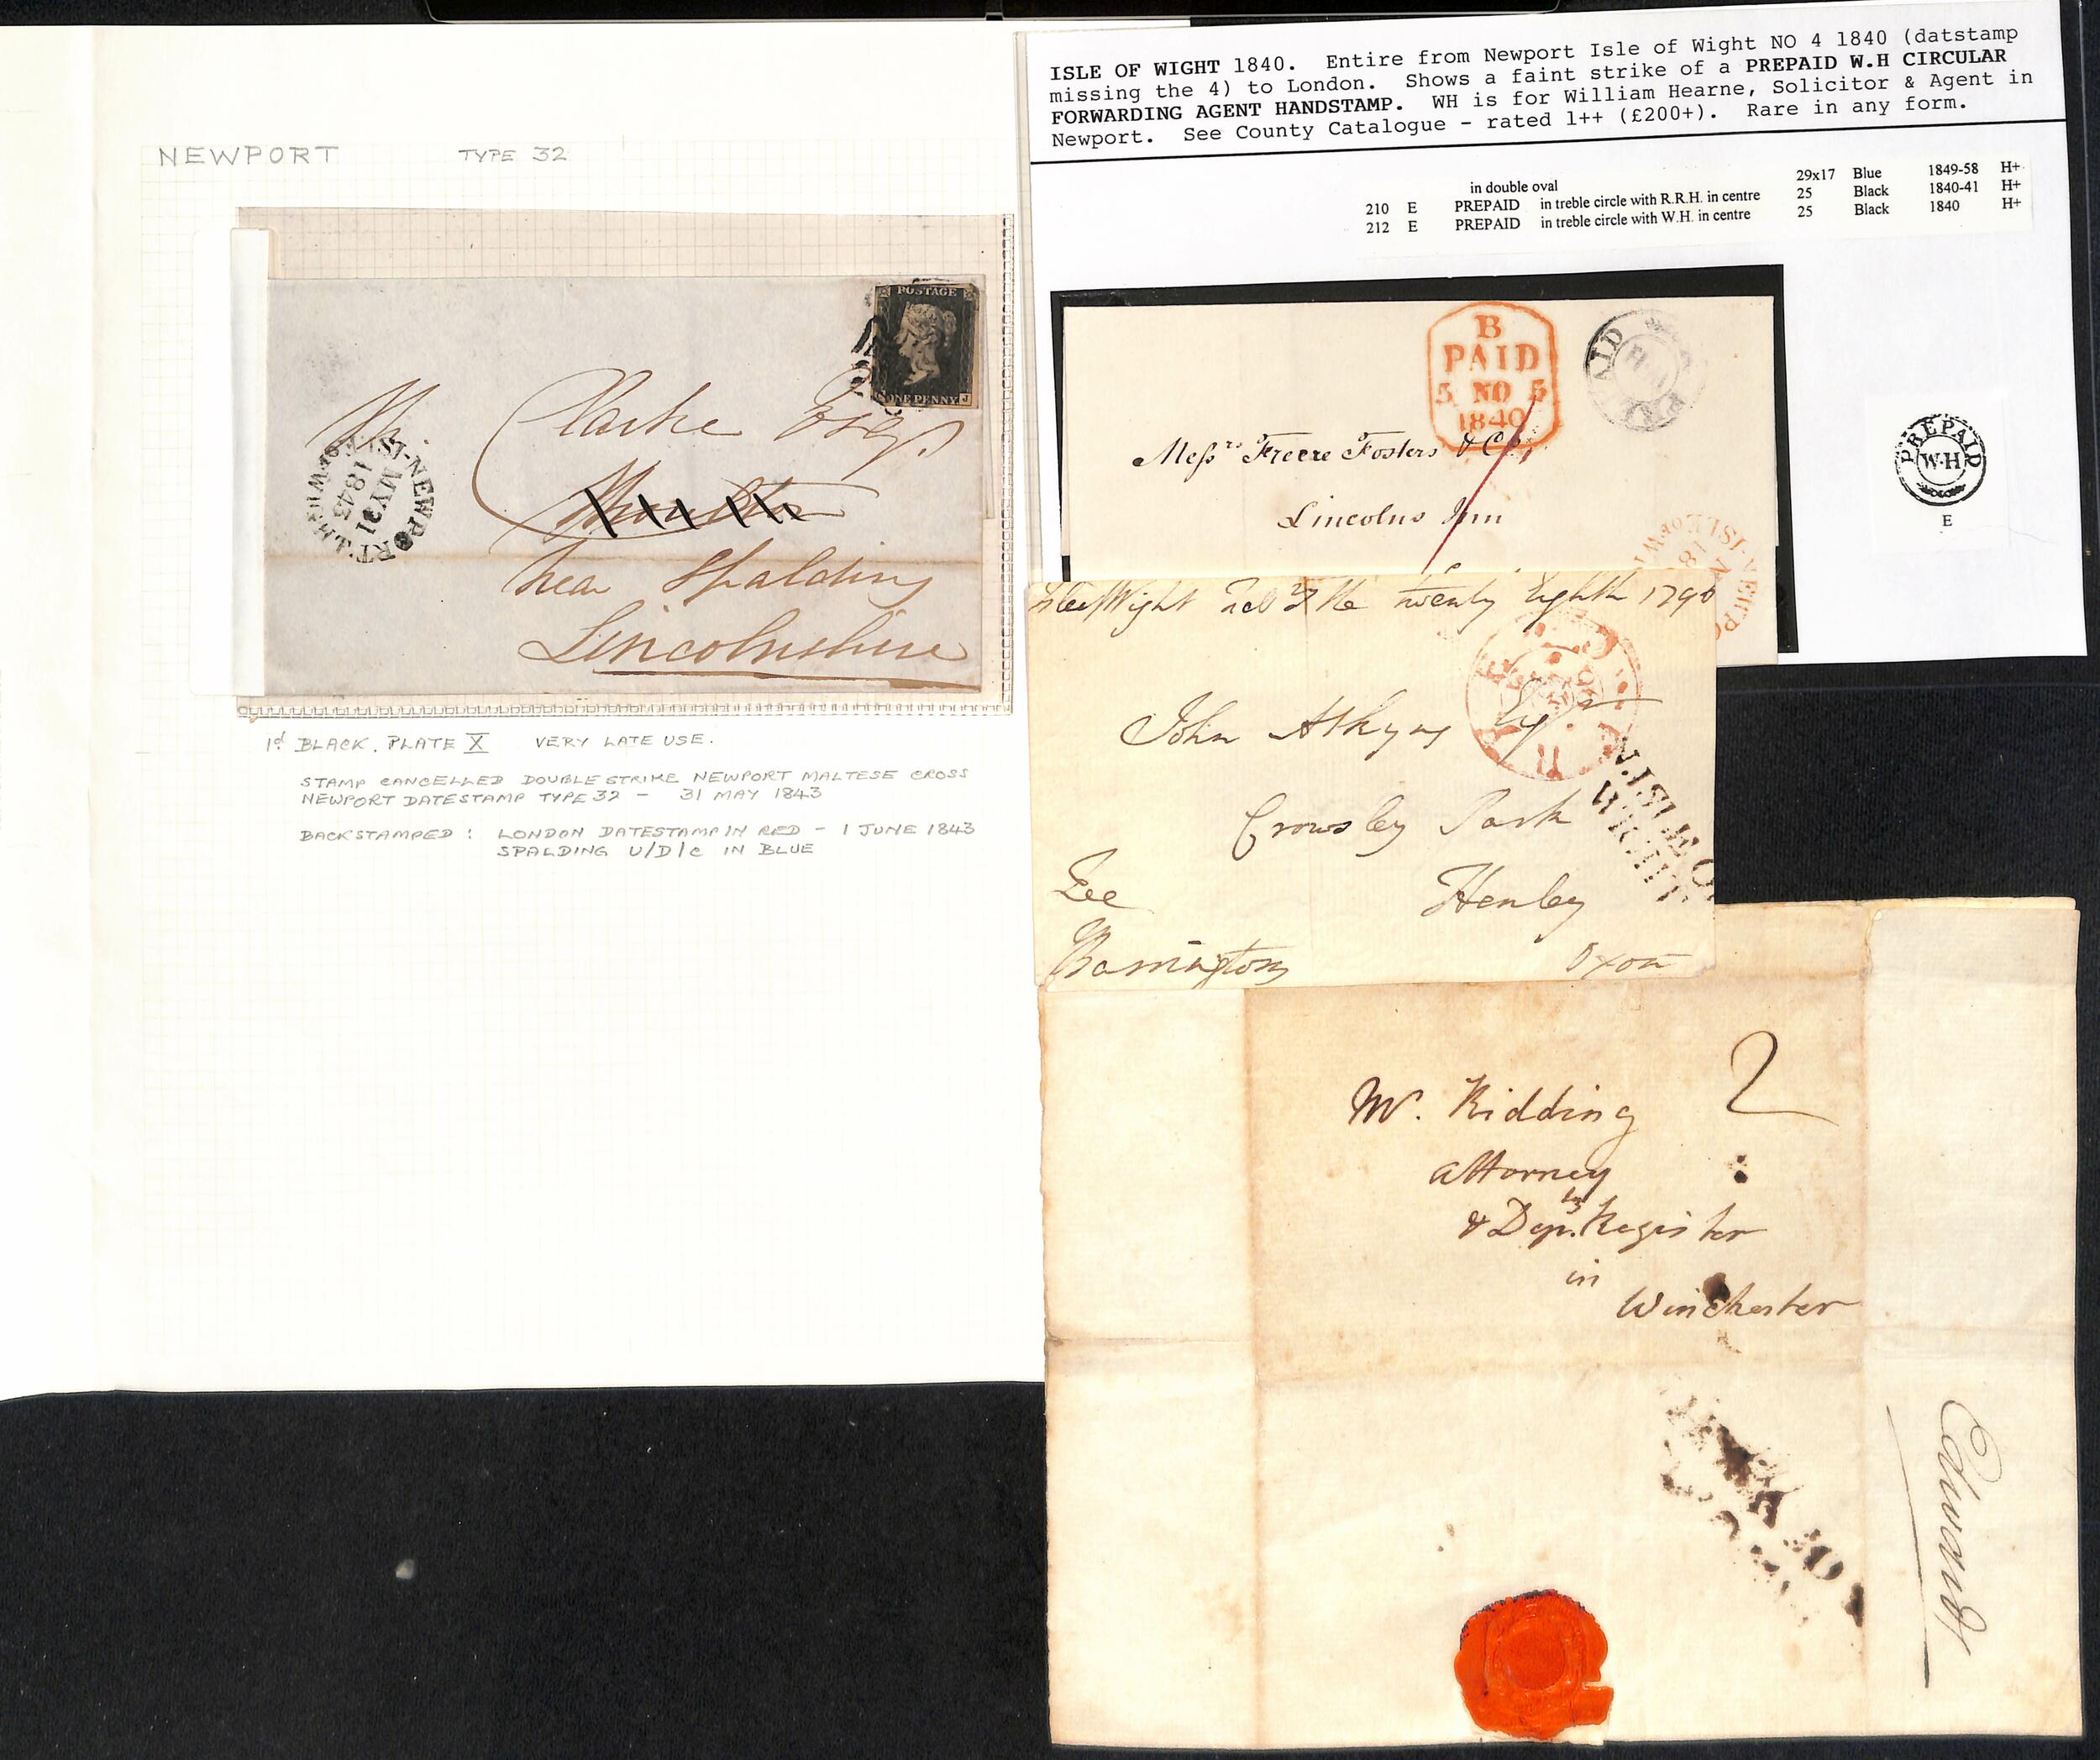 NEWPORT TYPE 32
POSTAGE
ONE PENNY J
Clarke Esqr
near Spalding
Lincolnshire
NEWPORT
MY 31
1843
1d BLACK. PLATE X VERY LATE USE.
STAMP CANCELLED DOUBLE STRIKE NEWPORT MALTESE CROSS
NEWPORT DATESTAMP TYPE 32 - 31 MAY 1843
BACKSTAMPED : LONDON DATESTAMP IN RED - 1 JUNE 1843
SPALDING U/D/C IN BLUE
ISLE OF WIGHT 1840. Entire from Newport Isle of Wight NO 4 1840 (datstamp
missing the 4) to London. Shows a faint strike of a PREPAID W.H CIRCULAR
FORWARDING AGENT HANDSTAMP. WH is for William Hearne, Solicitor & Agent in
Newport. See County Catalogue - rated 1++ (£200+). Rare in any form.
in double oval 29x17 Blue 1849-58 H+
210 E PREPAID in treble circle with R.R.H. in centre 25 Black 1840-41 H+
212 E PREPAID in treble circle with W.H. in centre 25 Black 1840 H+
B
PAID
5 NO 5
1840
Messrs Freere Fosters & Co,
Lincolns Inn
PREPAID
W·H
E
Wight twenty eighth 1790
John Atkyns Esqr
Crowsley Park
Henley
Oxon
Free
Barrington
N.ISLE.O.
WIGHT.
Mr. Ridding 2
Attorney
& Depy. Register
in
Winchester
Edwards